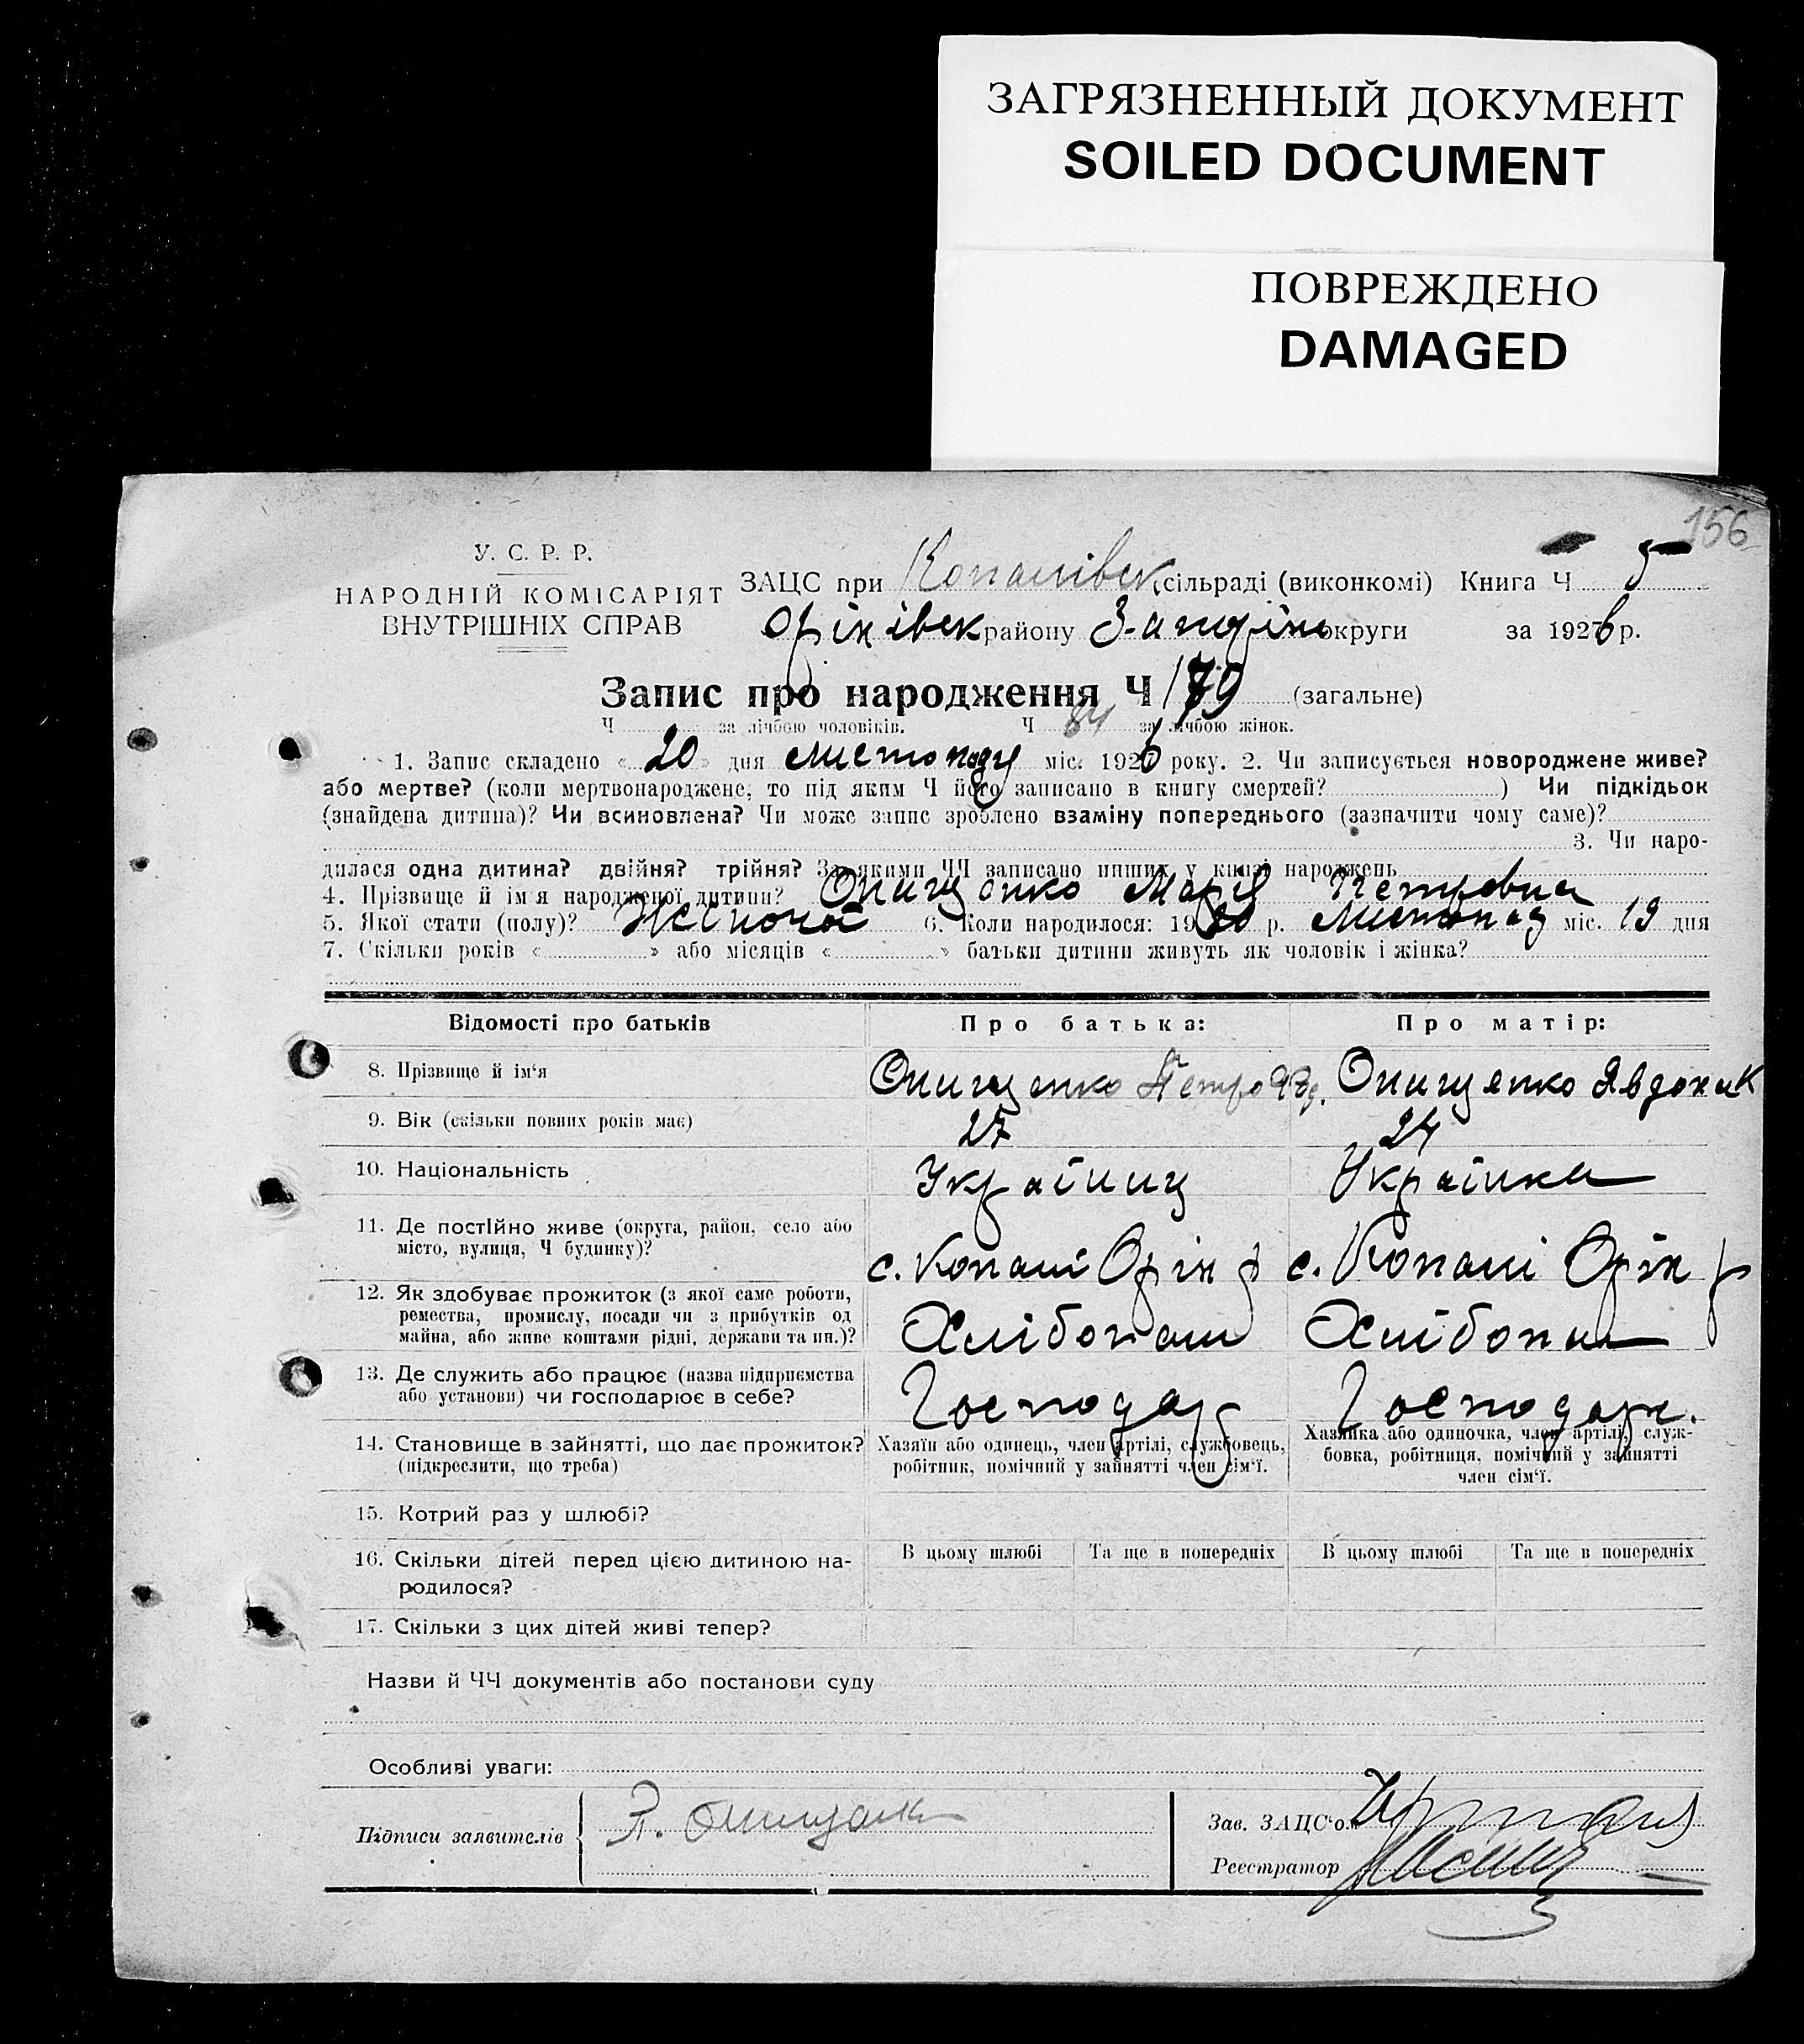 ЗАГРЯЗНЕННЫЙ ДОКУМЕНТ
SOILED DOCUMENT
ПОВРЕЖДЕНО
DAMAGED
156
У. С. Р. Р.
НАРОДНІЙ КОМІСАРІЯТ
ВНУТРІШНІХ СПРАВ
ЗАЦС при Копанівск сільраді (виконкомі) Книга Ч 5
Орінівск району З-апоріж округи за 1926 р.
Запис про народження Ч 179 (загальне)
Ч за лічбою чоловіків. Ч 84 за лічбою жінок.
1. Запис складено « 20 » дня листопаду міс. 1926 року. 2. Чи записується новороджене живе?
або мертве? (коли мертвонароджене, то під яким Ч його записано в книгу смертей? ) Чи підкідьок
(знайдена дитина)? Чи всиновлена? Чи може запис зроблено взаміну попереднього (зазначити чому саме)?
3. Чи наро-
дилася одна дитина? двійня? трійня? За якими ЧЧ записано инших у книзі народжень
4. Прізвище й ім'я народженої дитини? Онищенко Марія Петровна
5. Якої стати (полу)? Жіночої 6. Коли народилося: 19 р. Листопад міс. 19 дня
7. Скільки років « » або місяців « » батьки дитини живуть як чоловік і жінка?
Відомості про батьків Про батька: Про матір:
8. Прізвище й ім'я Онищенко Петро Онищенко Явдоки
9. Вік (скільки повних років має) 27 24
10. Національність Українц Українка
11. Де постійно живе (округа, район, село або
місто, вулиця, Ч будинку)? с. Копані Орік р с. Копані Орік р
12. Як здобуває прожиток (з якої саме роботи,
ремества, промислу, посади чи з прибутків од
майна, або живе коштами рідні, держави та ин.)? Хлібопаш Хлібопаш
13. Де служить або працює (назва підприємства
або установи) чи господарює в себе? Господар Господарк.
14. Становище в зайнятті, що дає прожиток?
(підкреслити, що треба)
Хазяїн або одинець, член артілі, службовець,
робітник, помічний у зайнятті член сім'ї.
Хазяйка або одиночка, член артілі, служ-
бовка, робітниця, помічний у зайнятті
член сім'ї.
15. Котрий раз у шлюбі?
16. Скільки дітей перед цією дитиною на-
родилося?
В цьому шлюбі Та ще в попередніх В цьому шлюбі Та ще в попередніх
17. Скільки з цих дітей живі тепер?
Назви й ЧЧ документів або постанови суду
Особливі уваги:
Підписи заявителів
Зав. ЗАЦС'ом
Реєстратор